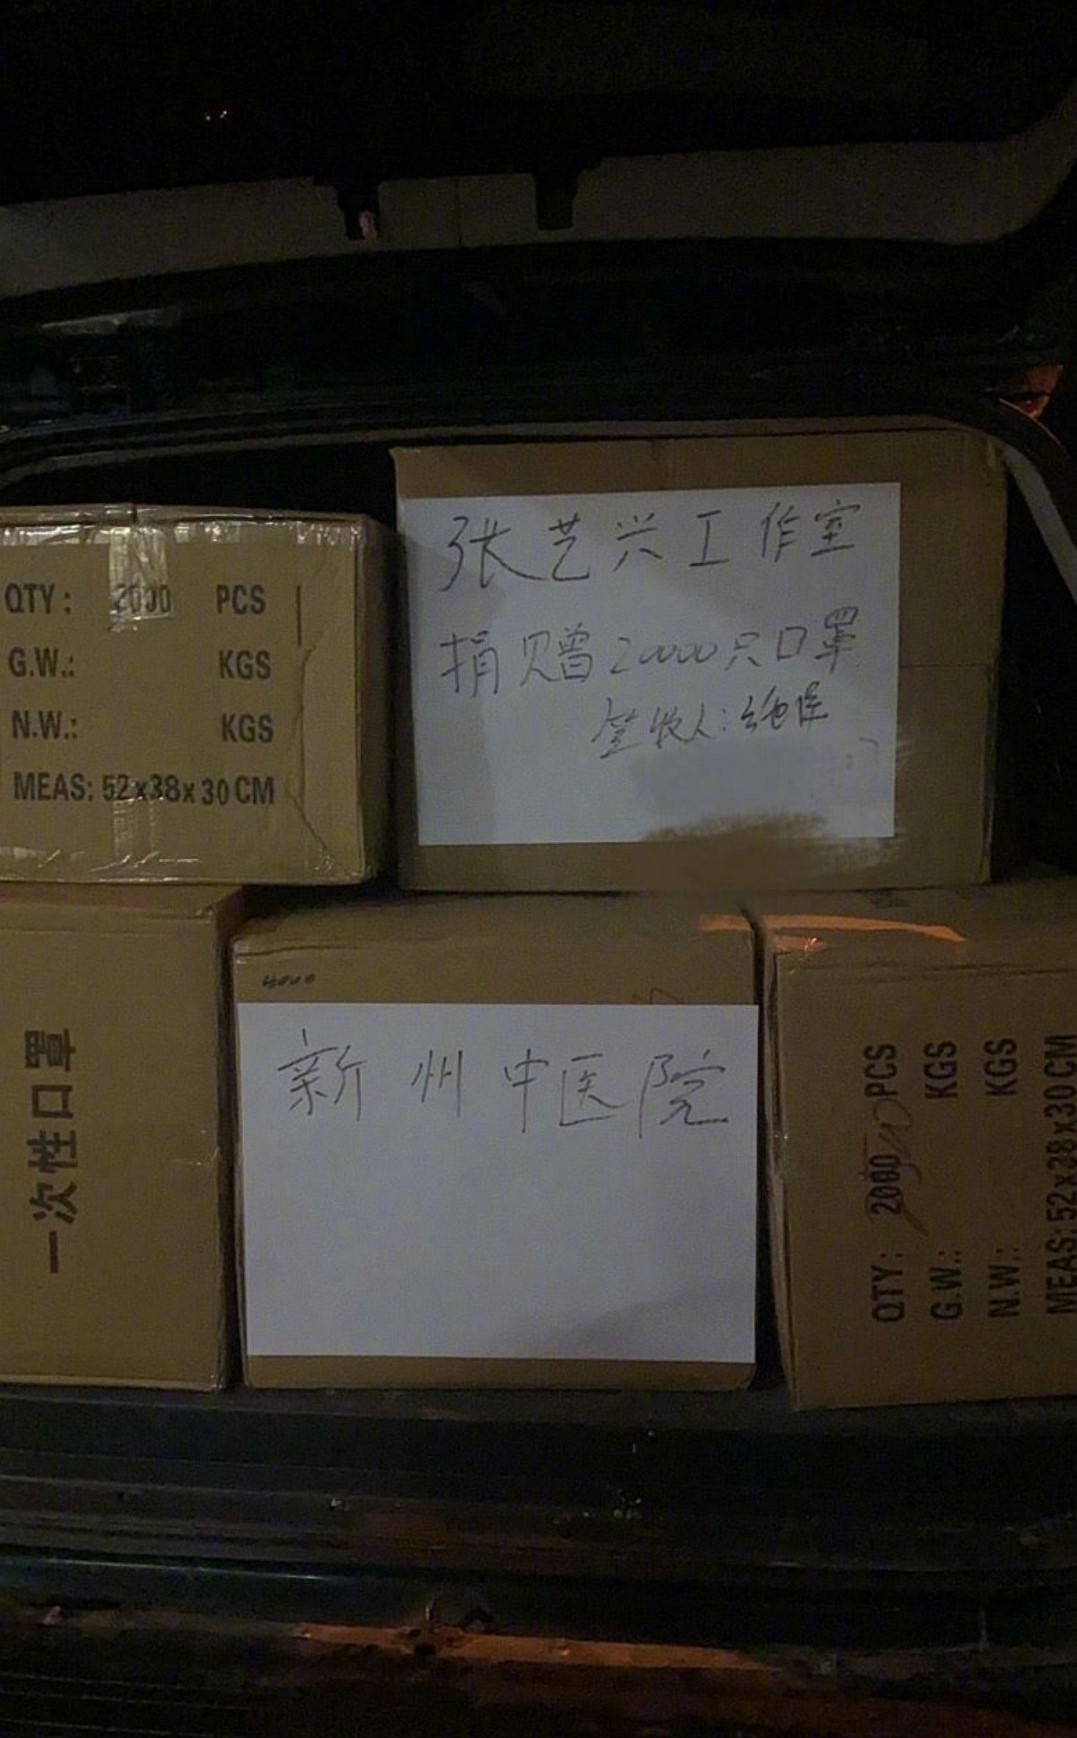 QTY: 2000 PCS
G.W.: KGS
N.W.: KGS
MEAS: 52x38x30 CM
张艺兴工作室
捐赠20000只口罩
签收人:
一次性口罩
4000
新州中医院
QTY: 2000 PCS
G.W.: KGS
N.W.: KGS
MEAS: 52x38x30 CM